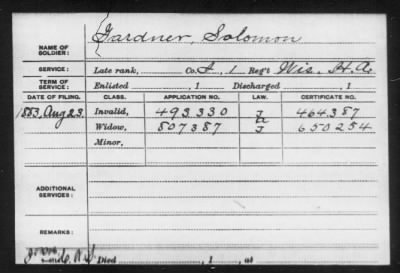 NAME OF SOLDIER: Gardner, Solomon
SERVICE: Late rank, Co. I, 1 Reg't Wis. H.A.
TERM OF SERVICE: Enlisted , 1 Discharged , 1
DATE OF FILING. CLASS. APPLICATION NO. LAW. CERTIFICATE NO.
1883, Aug 23. Invalid, 493.330 J 464.387
Widow, 807387 J 650254
Minor,
ADDITIONAL SERVICES:
REMARKS:
Died , 1 , at